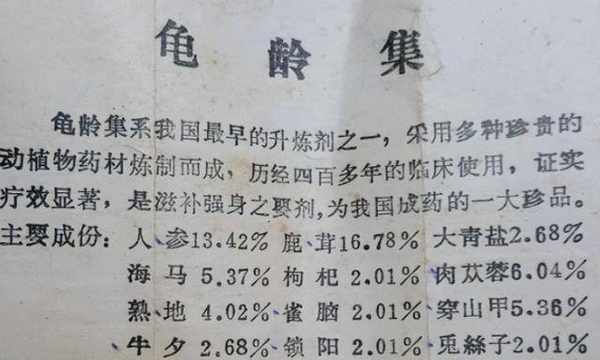 龟龄集
龟龄集系我国最早的升炼剂之一，采用多种珍贵的
动植物药材炼制而成，历经四百多年的临床使用，证实
疗效显著，是滋补强身之要剂，为我国成药的一大珍品。
主要成份：人、参13.42% 鹿、茸16.78% 大青盐2.68%
海马5.37% 枸杞2.01% 肉苁蓉6.04%
熟、地4.02% 雀脑2.01% 穿山甲5.36%
牛夕2.68% 锁阳2.01% 兎絲子2.01%